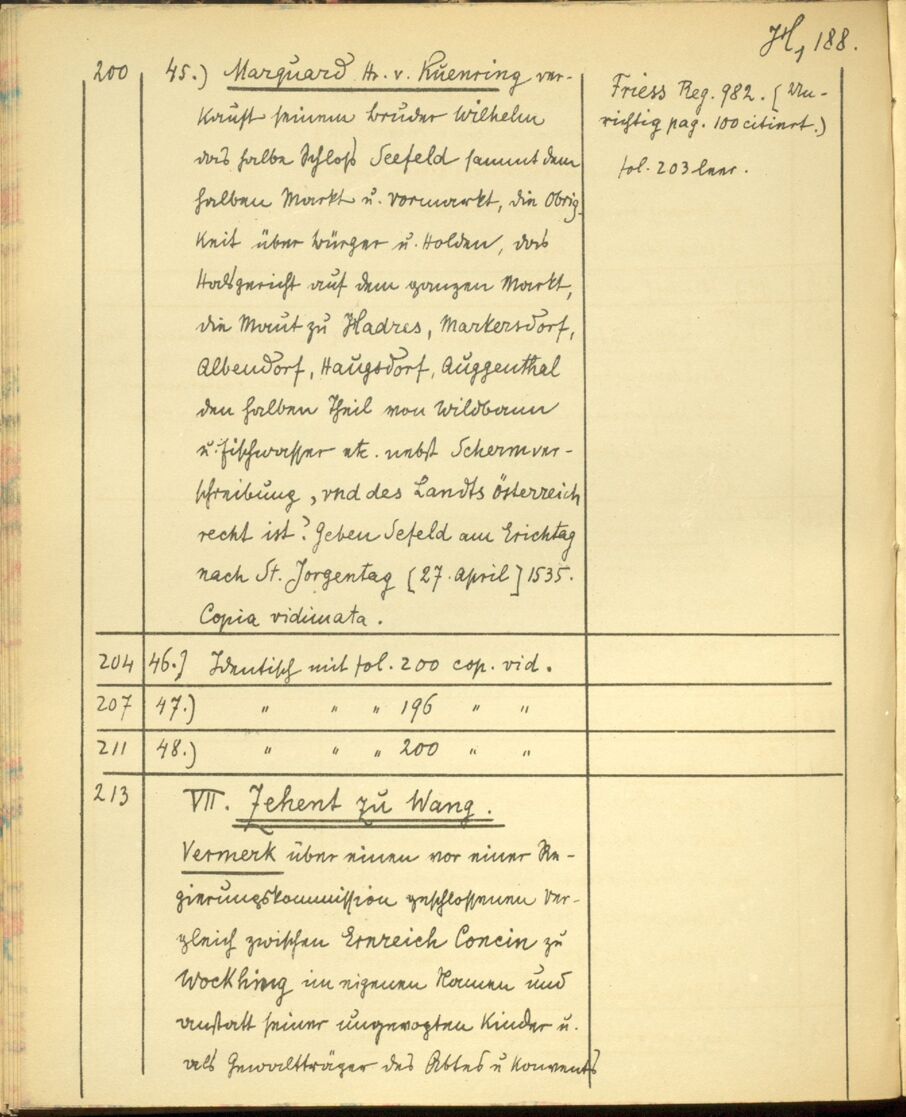 H, 188.
200 45.) Marquard Hr. v. Kuenring ver-
kauft seinem Bruder Wilhelm
das halbe Schloß Seefeld sammt dem
halben Markt u. Vormarkt, die Obrig-
keit über Bürger u. Holden, das
Halsgericht auf dem ganzen Markt,
die Maut zu Hadres, Markersdorf,
Albendorf, Haugsdorf, Auggenthal
den halben Theil von Wildbann
u. Fischwasser etc. nebst Schermver-
schreibung, vnd des Landts Österreich
recht ist? Geben Sefeld am Erichtag
nach St. Jorgentag [27. April] 1535.
Copia vidimata.
Friess Reg. 982. (Un-
richtig pag. 100 citiert.)
fol. 203 leer.
204 46.) Identisch mit fol. 200 cop. vid.
207 47.) " " " 196 " "
211 48.) " " " 200 " "
213 VII. Zehent zu Wang.
Vermerk über einen vor einer Re-
gierungskommission geschlossenen Ver-
gleich zwischen Ernreich Concin zu
Wockhing im eigenen Namen und
anstatt seiner ungevogten Kinder u.
als Gewaltträger des Abtes u Konvents